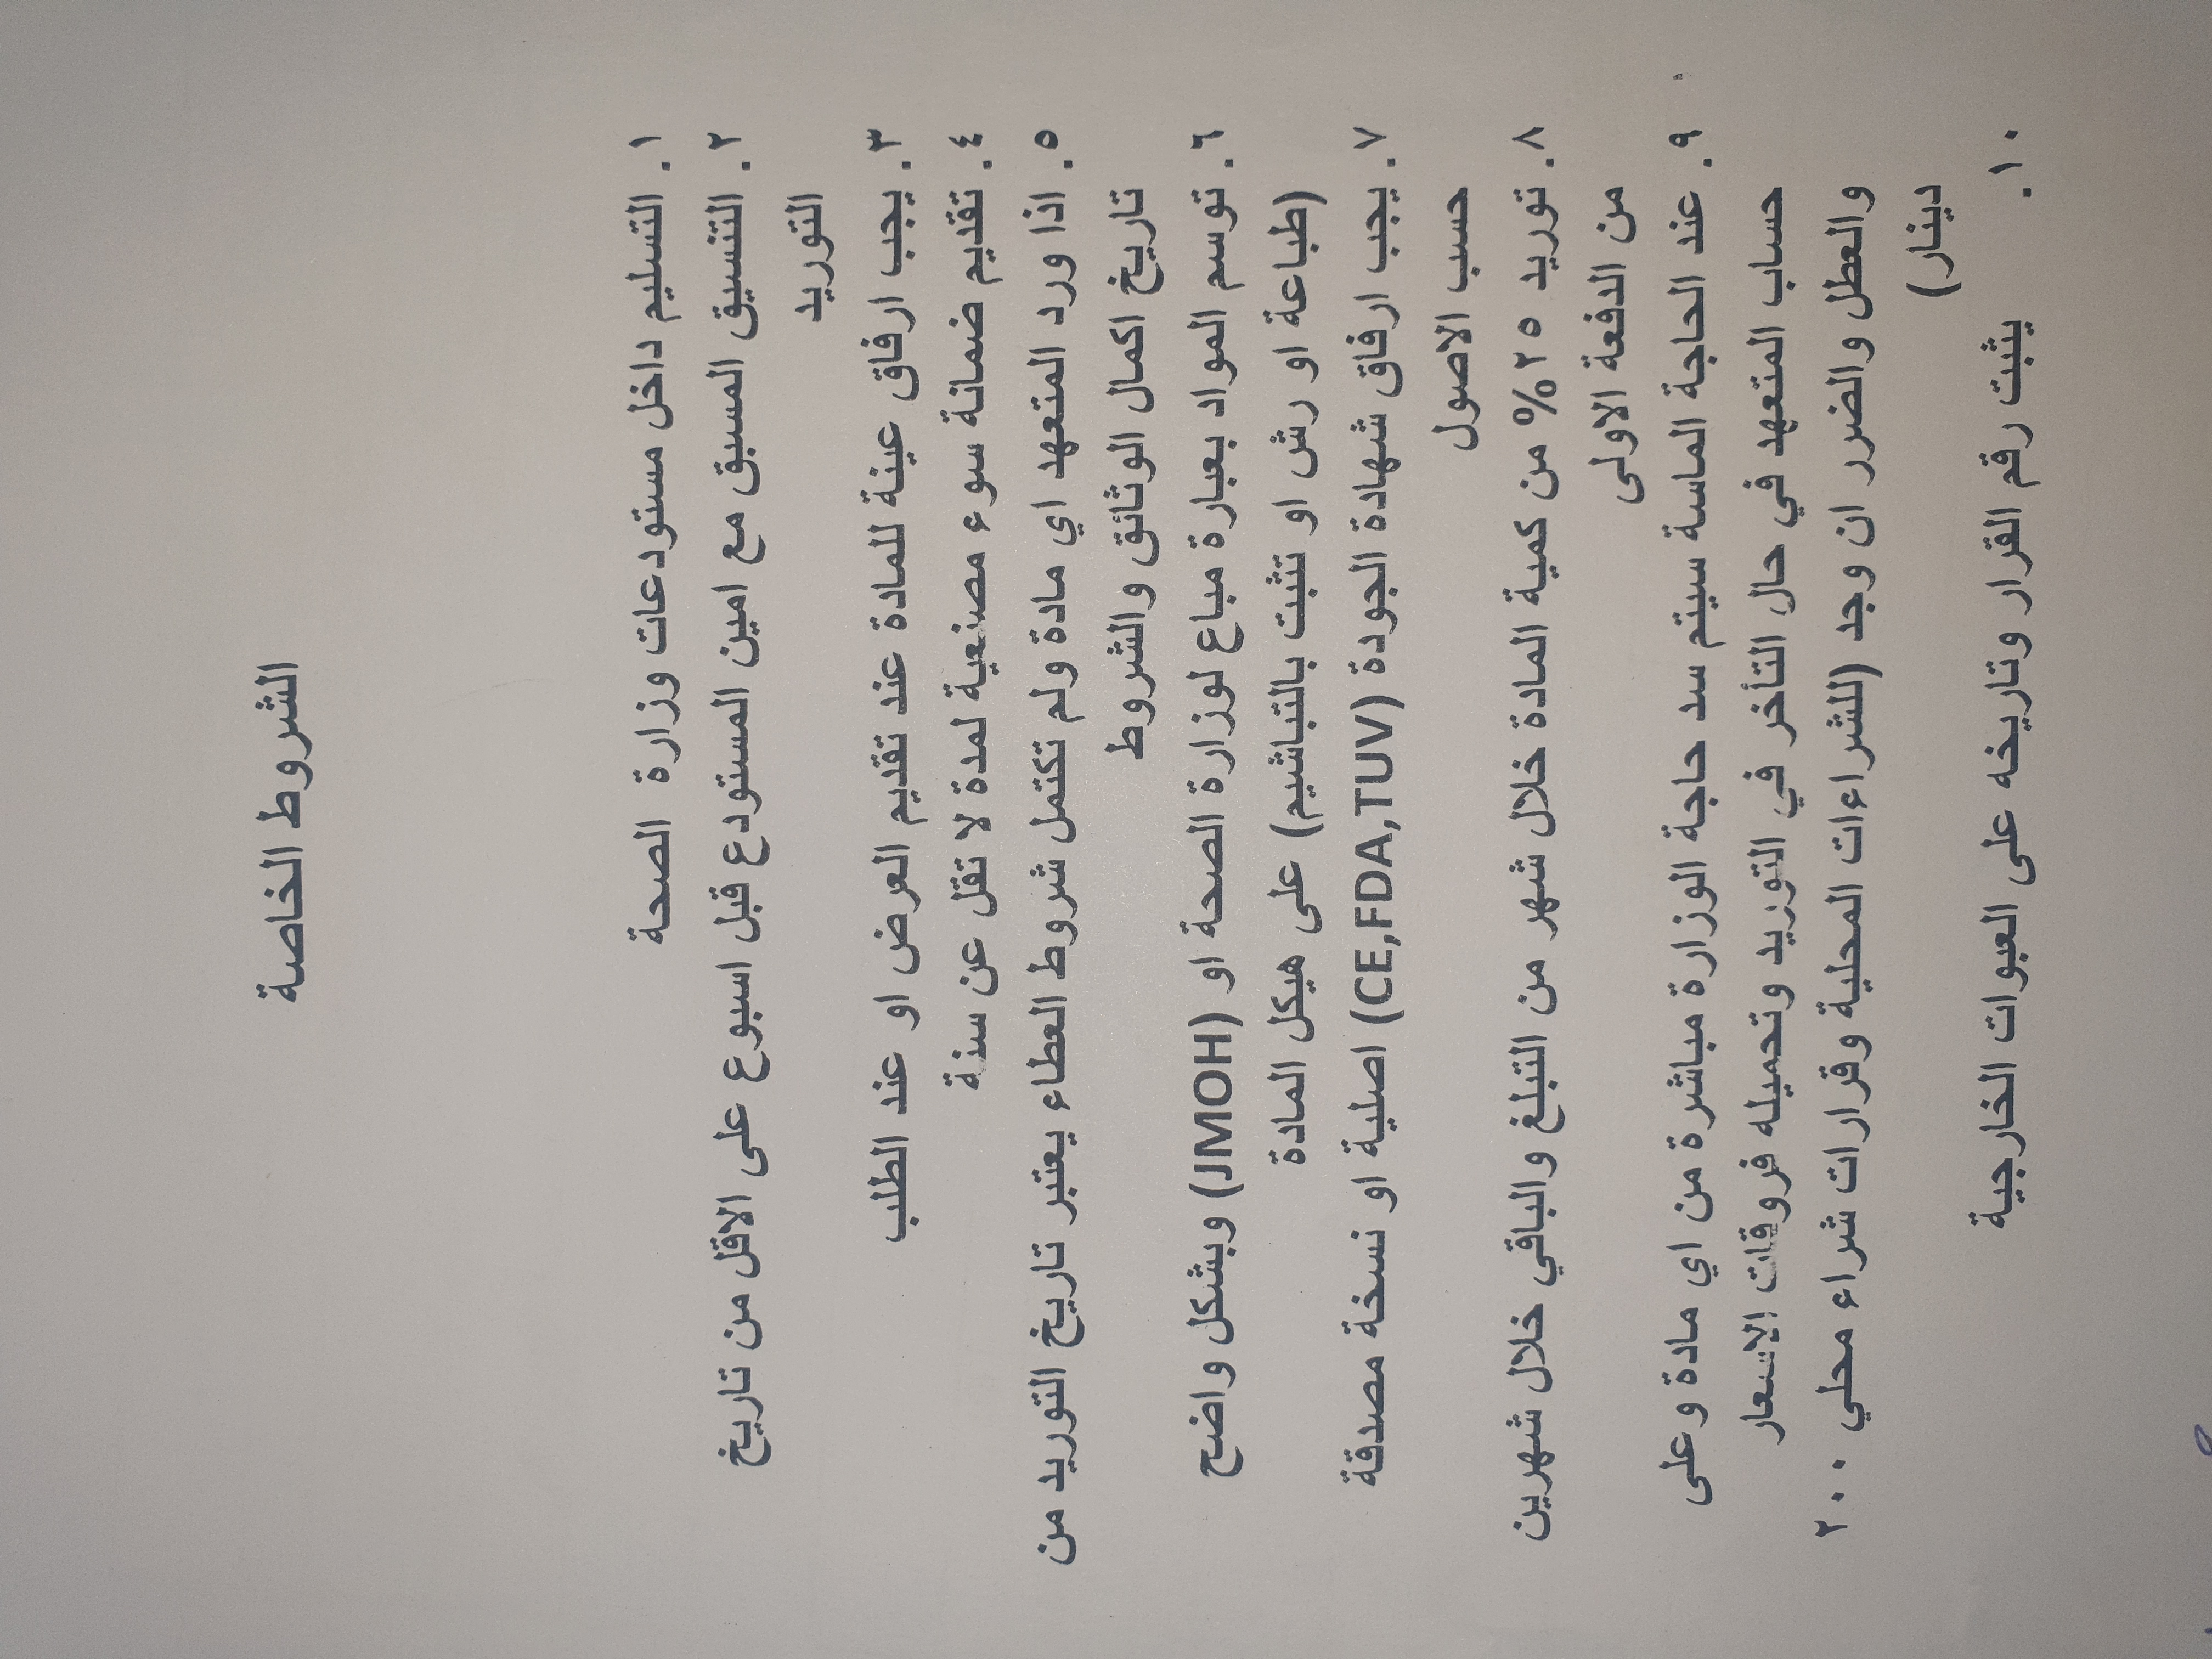 الشروط الخاصة
١. التسليم داخل مستودعات وزارة الصحة
٢. التنسيق المسبق مع امين المستودع قبل اسبوع على الاقل من تاريخ
التوريد
٣. يجب ارفاق عينة للمادة عند تقديم العرض او عند الطلب
٤. تقديم ضمانة سوء مصنعية لمدة لا تقل عن سنة
٥. اذا ورد المتعهد اي مادة ولم تكتمل شروط العطاء يعتبر تاريخ التوريد من
تاريخ اكمال الوثائق والشروط
٦. توسم المواد بعبارة مباع لوزارة الصحة او (JMOH) وبشكل واضح
(طباعة او رش او تثبت بالتباشيم) على هيكل المادة
٧. يجب ارفاق شهادة الجودة (CE,FDA,TUV) اصلية او نسخة مصدقة
حسب الاصول
٨. توريد ٢٥% من كمية المادة خلال شهر من التبلغ والباقي خلال شهرين
من الدفعة الاولى
٩. عند الحاجة الماسة سيتم سد حاجة الوزارة مباشرة من اي مادة وعلى
حساب المتعهد في حال التأخر في التوريد وتحميله فروقات الاسعار
والعطل والضرر ان وجد (للشراءات المحلية وقرارات شراء محلي ٢٠٠٠
دينار)
١٠. يثبت رقم القرار وتاريخه على العبوات الخارجية